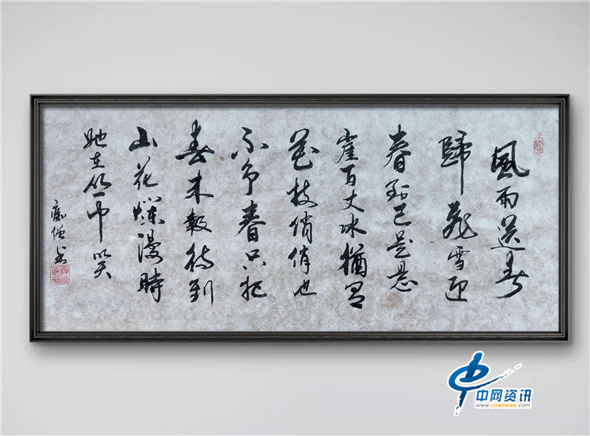 風雨送春
歸飛雪迎
春到已是悬
崖百丈冰猶有
花枝俏俏也
不争春只把
春来報待到
山花爛漫時
她在丛中笑
书
中网资讯
www.cnwnews.com